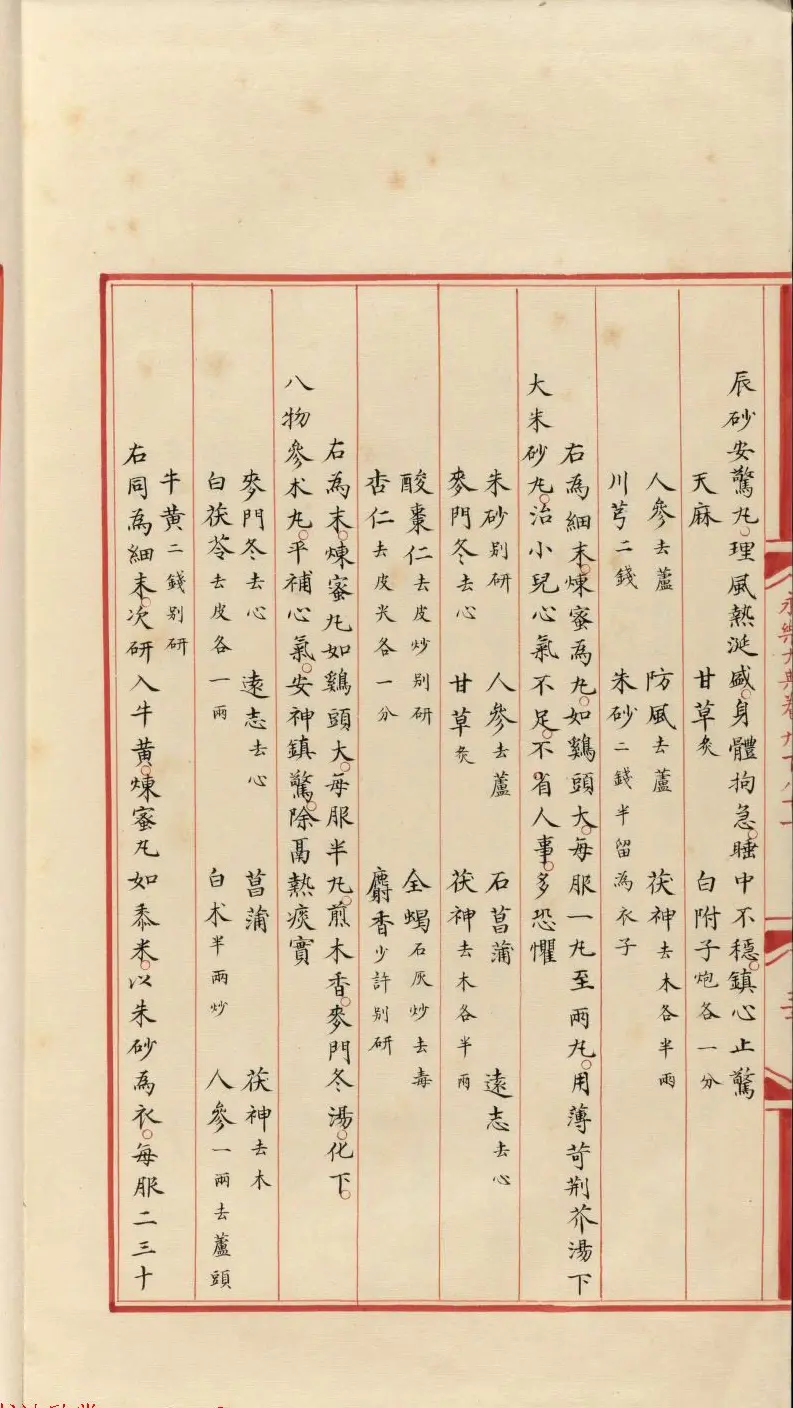 永樂大典卷九百八十一
三
辰砂安驚丸。理風熱涎盛。身體拘急。睡中不穩。鎮心止驚
天麻 甘草炙 白附子炮各一分
人參去蘆 防風去蘆 茯神去木各半兩
川芎二錢 朱砂二錢半留為衣子
右為細末。煉蜜為丸。如鷄頭大。每服一丸至兩丸。用薄苛荆芥湯下
大朱砂丸。治小兒心氣不足。不省人事。多恐懼
朱砂别研 人參去蘆 石菖蒲 遠志去心
麥門冬去心 甘草炙 茯神去木各半兩
酸棗仁去皮炒别研 全蝎石灰炒去毒
杏仁去皮尖各一分 麝香少許别研
右為末。煉蜜丸如鷄頭大。每服半丸。煎木香。麥門冬湯。化下。
八物參术丸。平補心氣。安神鎮驚。除鬲熱痰實
麥門冬去心 遠志去心 菖蒲 茯神去木
白茯苓去皮各一兩 白术半兩炒 人參一兩去蘆頭
牛黄二錢别研
右同為細末。次研入牛黄。煉蜜丸如黍米。以朱砂為衣。每服二三十